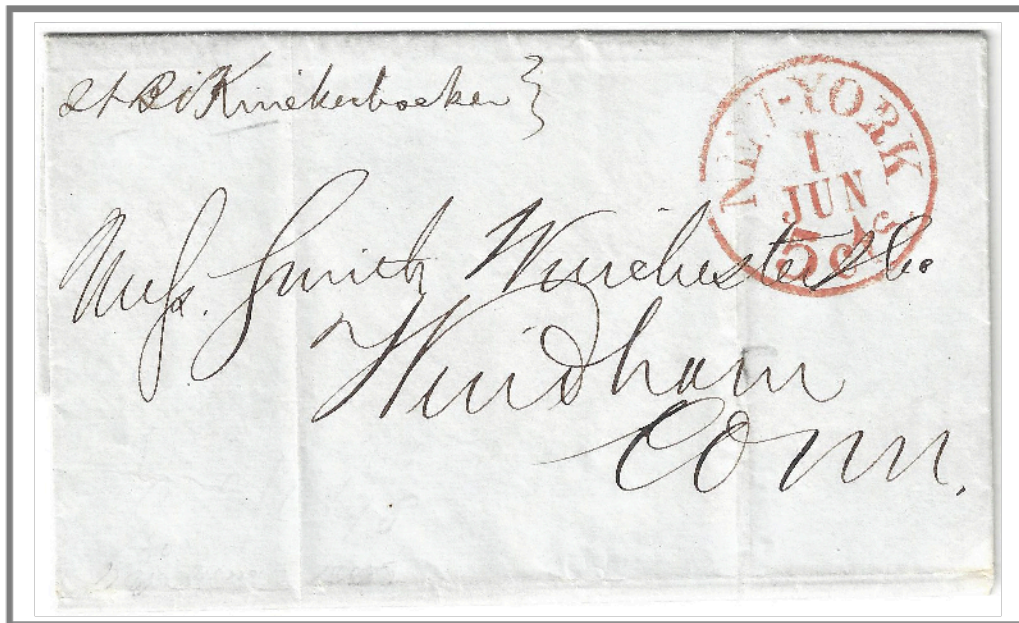 St Bt Knickerbocker }
NEW-YORK
1
JUN
5 cts
Mess. Smith Winchester & Co.
Windham
Conn.